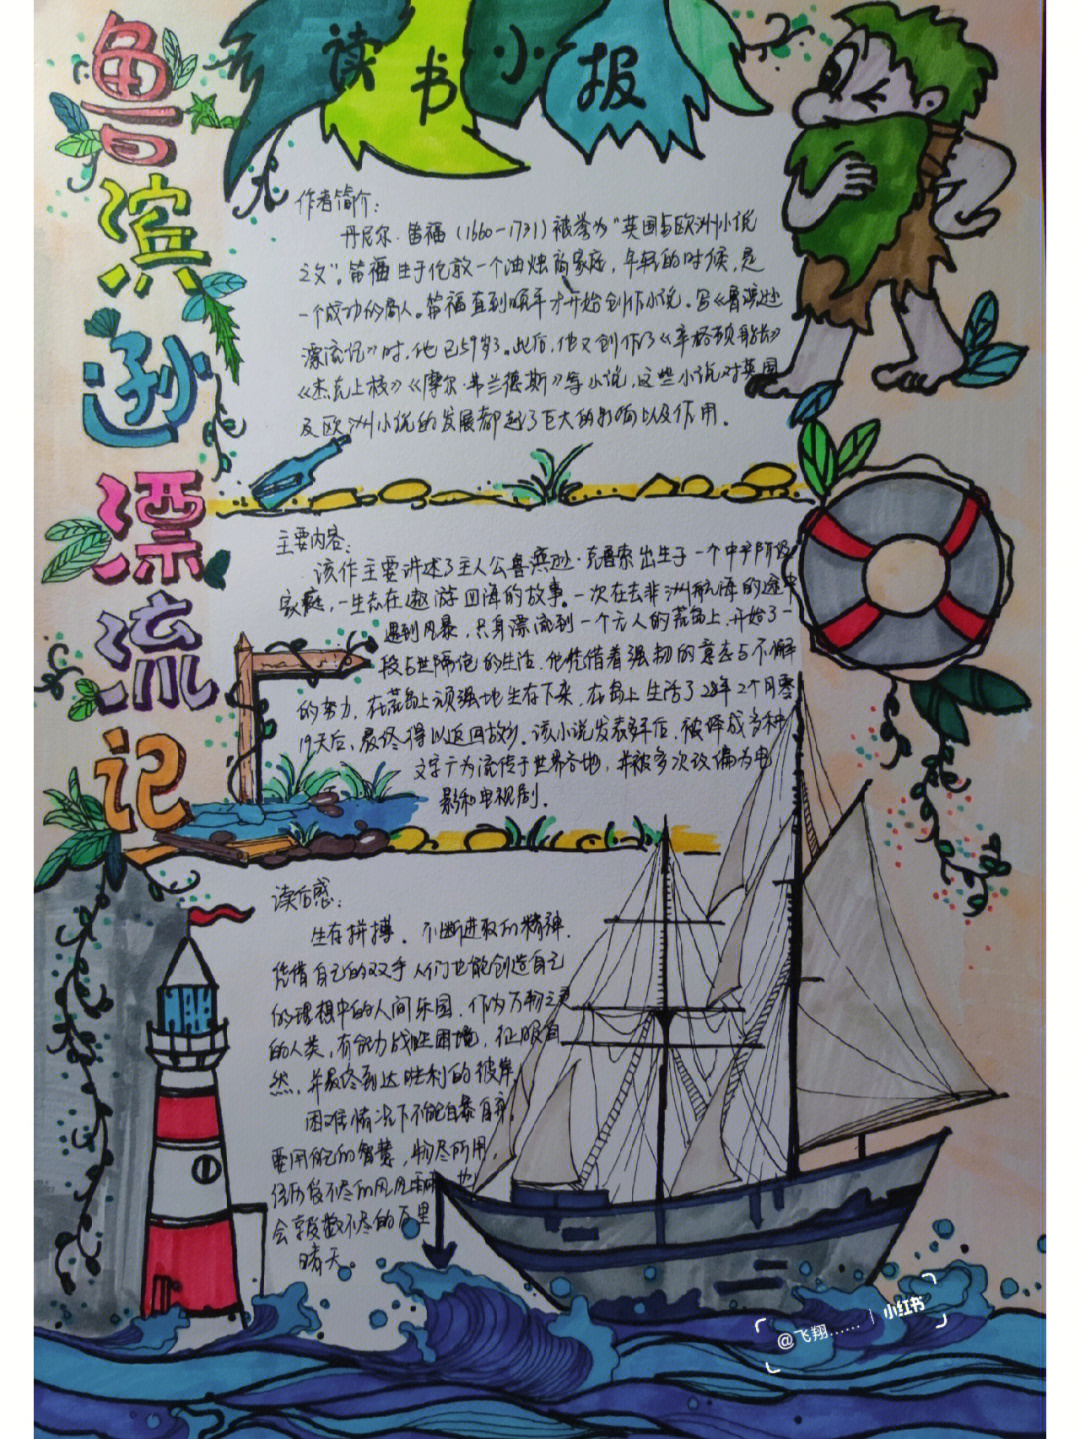 读书小报
鲁滨逊漂流记
作者简介：
丹尼尔·笛福（1660-1731）被誉为“英国与欧洲小说
之父”。笛福生于伦敦一个油烛商家庭，年轻的时候，是
一个成功的商人。笛福直到晚年才开始创作小说。写《鲁滨逊
漂流记》时，他已59岁了。此后，他又创作了《辛格顿船长》
《杰克上校》《摩尔·弗兰德斯》等小说，这些小说对英国
及欧洲小说的发展都起了巨大的影响以及作用。
主要内容：
该作主要讲述了主人公鲁滨逊·克鲁索出生于一个中产阶级
家庭，一生志在遨游四海的故事。一次在去非洲航海的途中
遇到风暴，只身漂流到一个无人的荒岛上，开始了一
段与世隔绝的生活。他凭借着强韧的意志与不懈
的努力，在荒岛上顽强地生存下来，在岛上生活了28年2个月零
19天后，最终得以返回故乡。该小说发表多年后，被译成多种
文字广为流传于世界各地，并被多次改编为电
影和电视剧。
读后感：
生存拼搏，不断进取的精神，
凭借自己的双手人们也能创造自己
的理想中的人间乐园，作为万物之灵
的人类，有能力战胜困境，征服自
然，并最终到达胜利的彼岸。
困难情况下不能自暴自弃，
要用自己的智慧，物尽所用，
经历数不尽的风风雨雨，也
会享数不尽的万里
晴天。
@飞翔…… 小红书